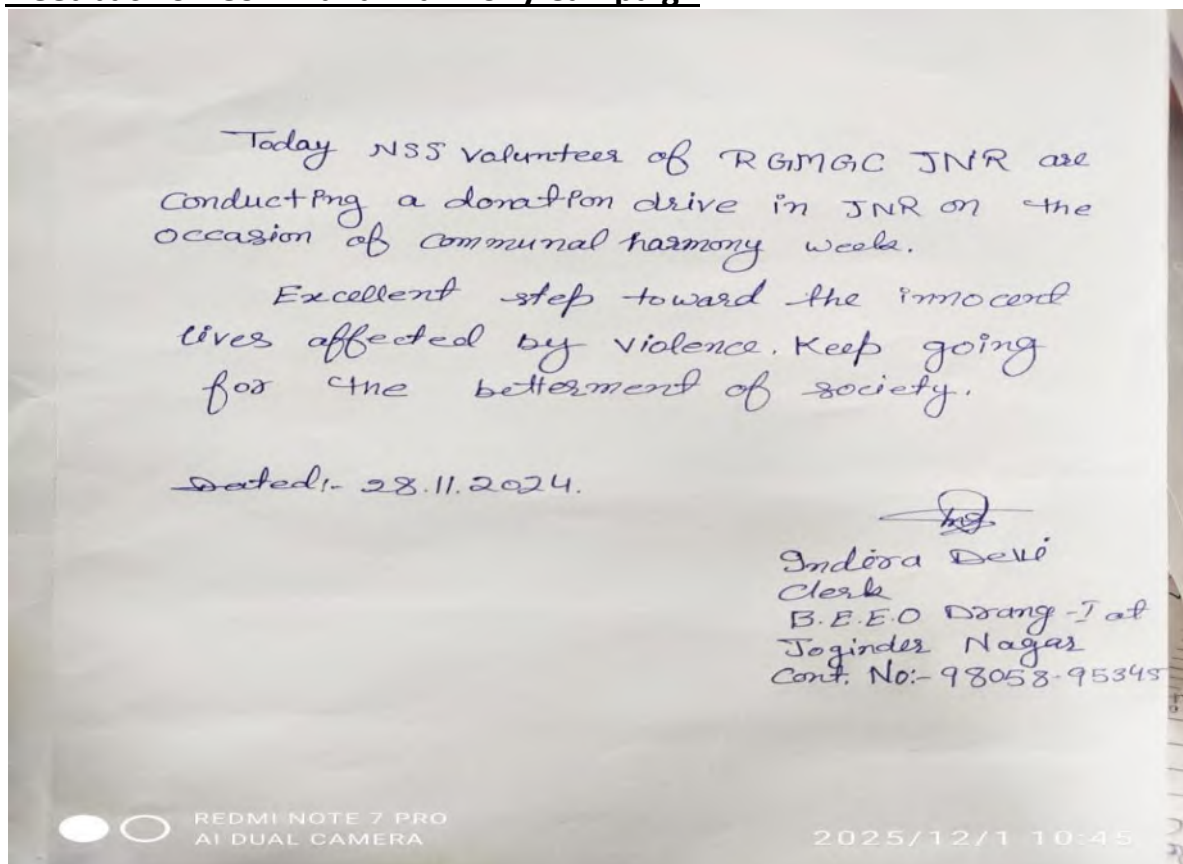 Today NSS Volunteer of RGMGC JNR are
conducting a donation drive in JNR on the
occasion of communal harmony week.
Excellent step toward the innocent
lives affected by violence. Keep going
for the betterment of society.
Dated:- 28.11.2024.
Indira Devi
Clerk
B.E.E.O Drang-I at
Joginder Nagar
Cont. No:- 98058-95345
REDMI NOTE 7 PRO
AI DUAL CAMERA
2025/12/1 10:45